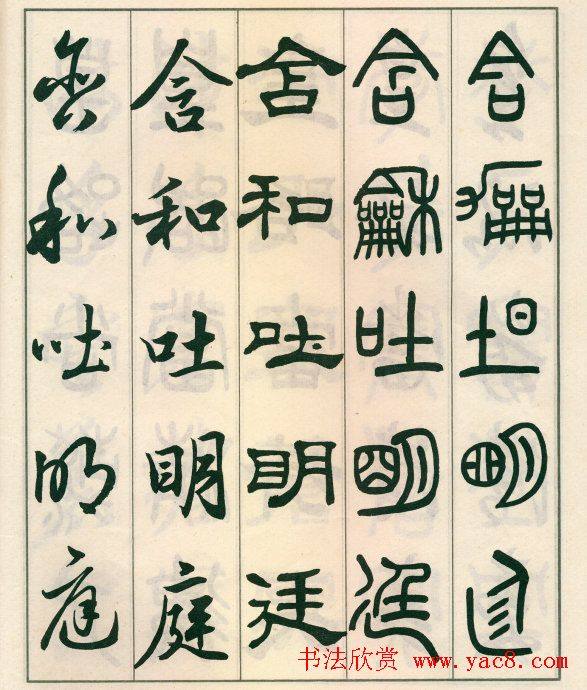 含吐明廷
含龢吐明廷
含和吐明廷
含和吐明庭
含和吐明庭
书法欣赏 www.yac8.com